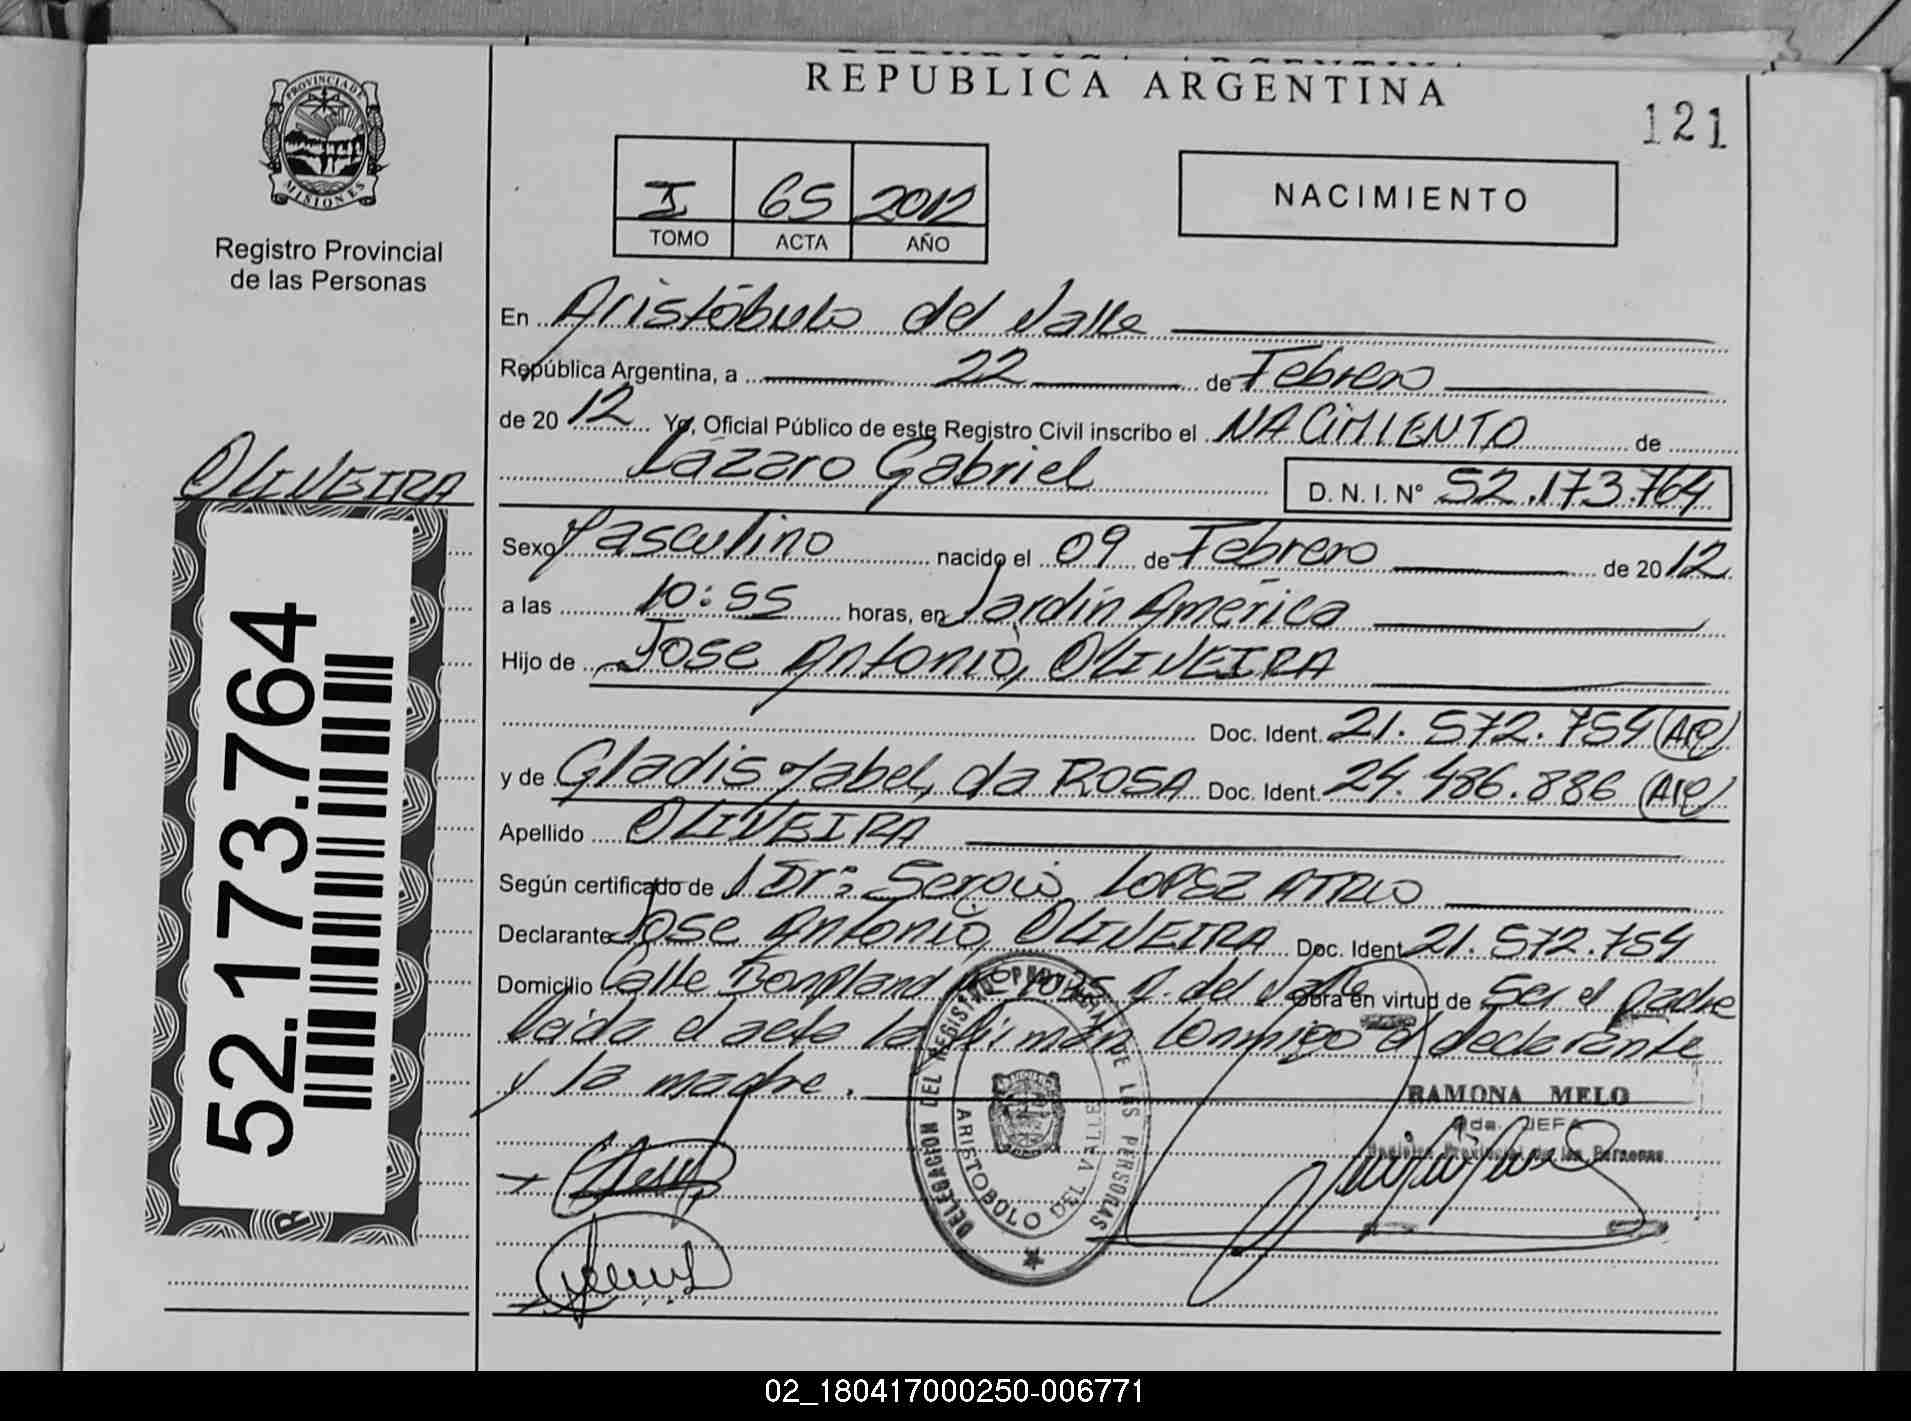 REPUBLICA ARGENTINA
121
PROVINCIA DE MISIONES
Registro Provincial
de las Personas
I 65 2012
TOMO ACTA AÑO
NACIMIENTO
En Aristóbulo del Valle
República Argentina, a 22 de Febrero
de 2012 Yo, Oficial Público de este Registro Civil inscribo el NACIMIENTO de
OLIVEIRA
Lázaro Gabriel D. N. I. N° 52.173.764
Sexo Masculino nacido el 09 de Febrero de 2012
a las 10:55 horas, en Jardín América
Hijo de José Antonio, OLIVEIRA
Doc. Ident. 21.572.754
y de Gladis Mabel, da ROSA Doc. Ident. 24.486.886
Apellido OLIVEIRA
Según certificado de Dr: Sergio LOPEZ ATRIO
Declarante José Antonio, OLIVEIRA Doc. Ident. 21.572.754
Domicilio Calle Bonpland A. del Valle Obra en virtud de Ser el padre
Leída el acta la firman conmigo el declarante
y la madre.
52.173.764
RAMONA MELO
JEFA
Registro Provincial de las Personas
DELEGACION DEL REGISTRO PROVINCIAL DE LAS PERSONAS
ARISTOBOLO DEL VALLE
02_180417000250-006771